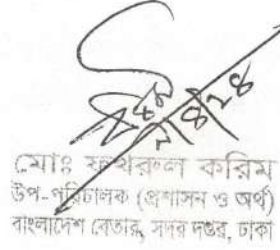 ২/৪/২৪
মোঃ ফখরুল করিম
উপ-পরিচালক (প্রশাসন ও অর্থ)
বাংলাদেশ বেতার, সদর দপ্তর, ঢাকা